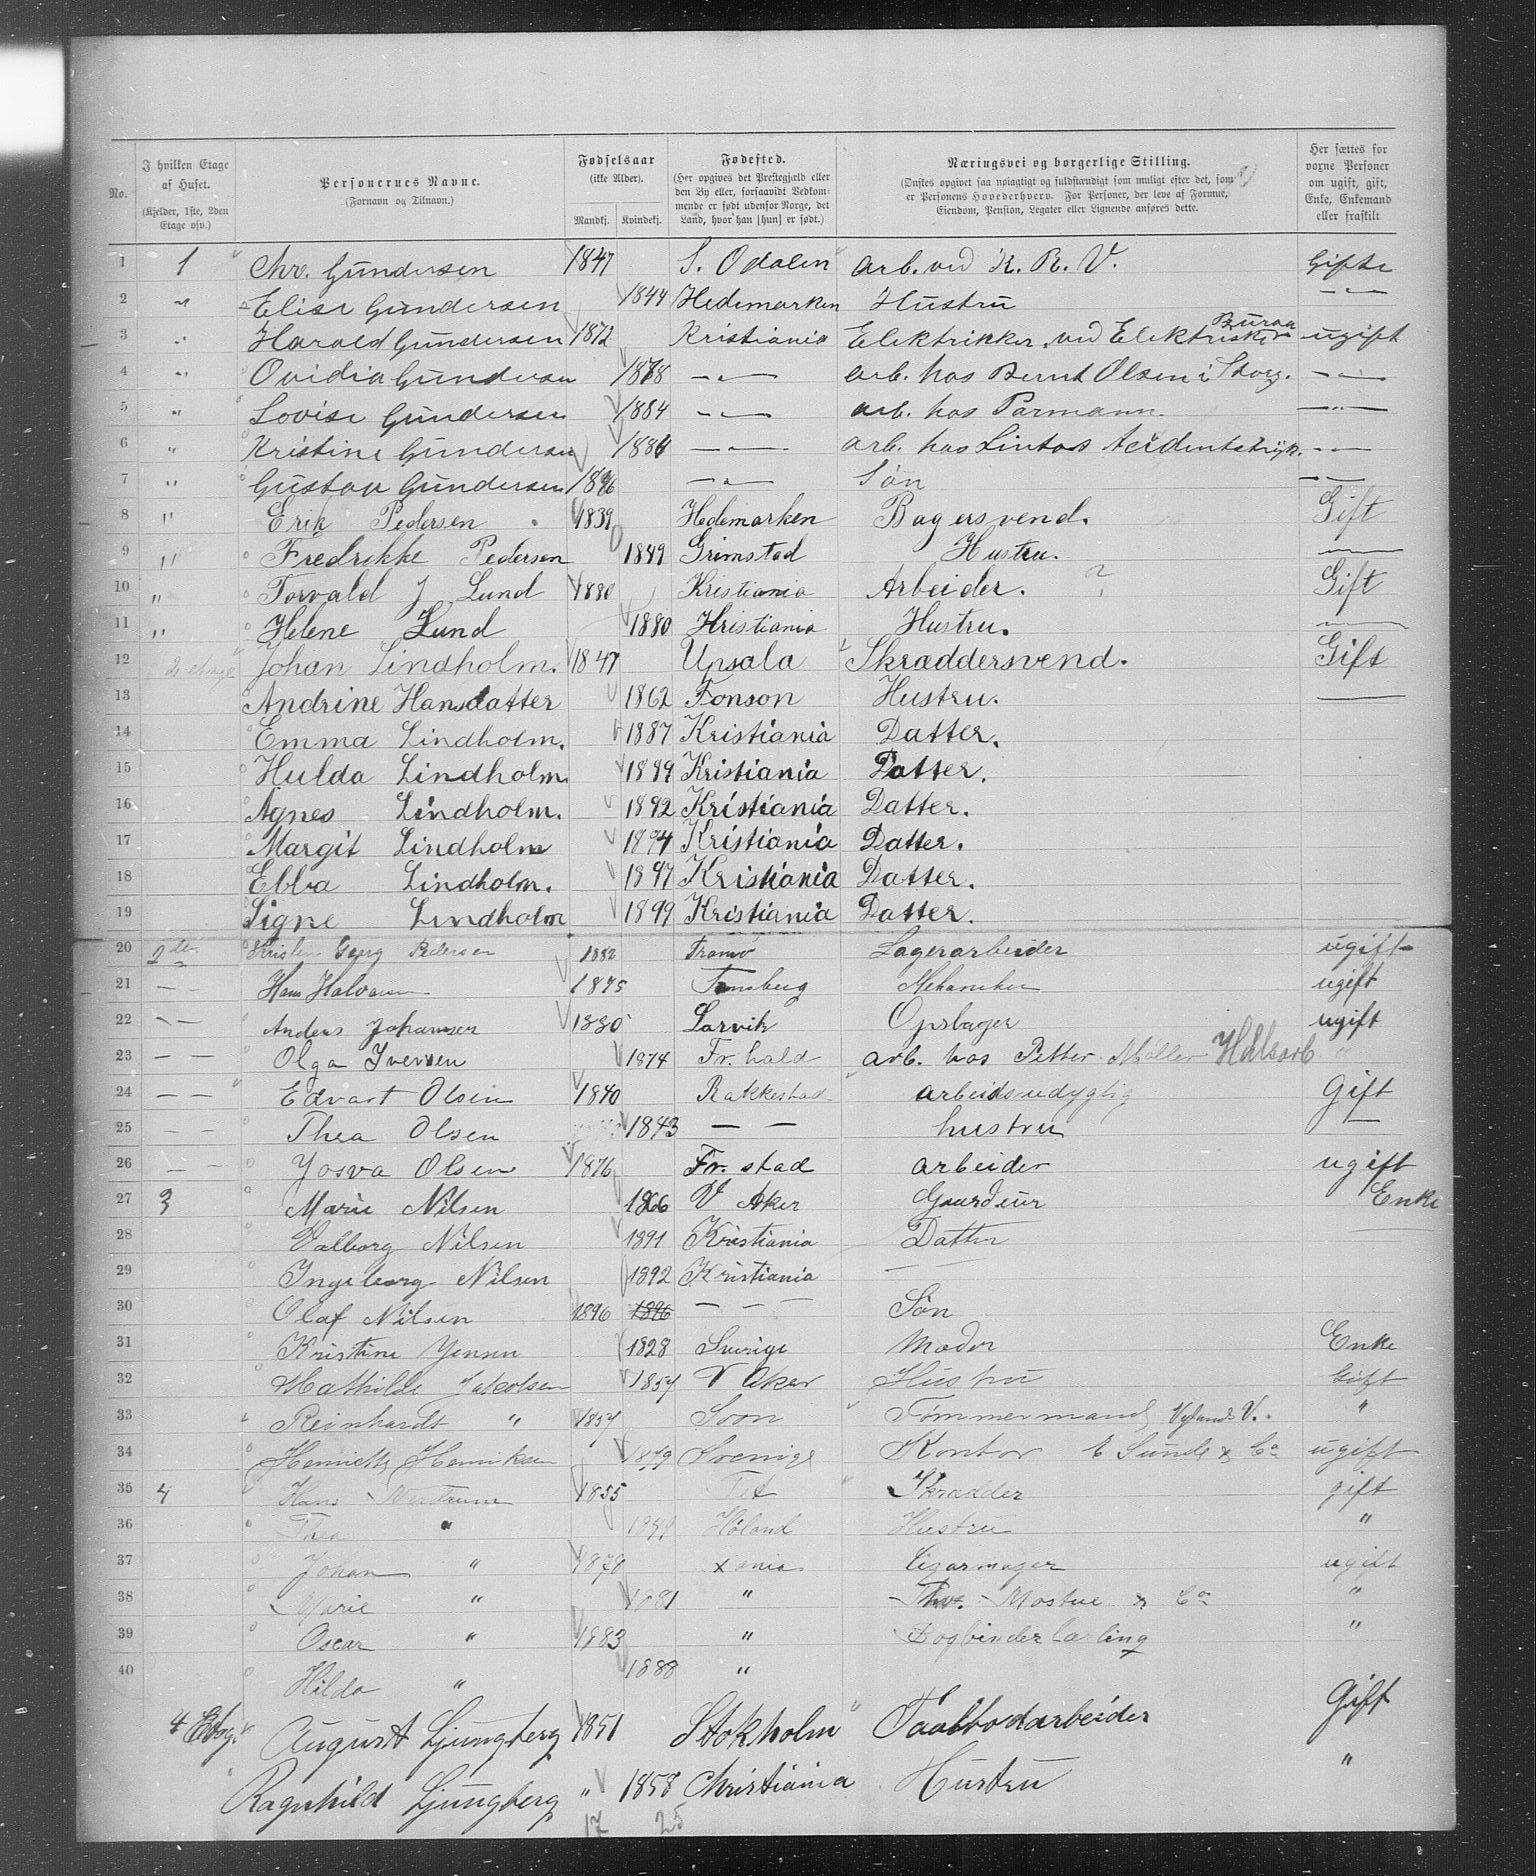 No. I hvilken Etage af Huset. (Kjelder, 1ste, 2den Etage osv.) Personernes Navne. (Fornavn og Tilnavn.) Fødselsaar (ikke Alder). Mandkj. Kvindekj. Fødested. (Her opgives det Prestegjæld eller den By eller, forsaavidt Vedkommende er født udenfor Norge, det Land, hvor han [hun] er født.) Næringsvei og borgerlige Stilling. (Ønskes opgivet saa nøiagtigt og fuldstændigt som muligt efter det, som er Personens Hovederhverv. For Personer, der leve af Formue, Eiendom, Pension, Legater eller Lignende anføres dette. Her sættes for voxne Personer om ugift, gift, Enke, Enkemand eller fraskilt
1 1 Chr. Gundersen 1847 S. Odalen arb. ved K. R. V. Gifte
2 " Elise Gundersen 1844 Hedemarken Hustru — " —
3 " Harald Gundersen 1872 Kristiania Elektrikker ved Elektriske Buraa ugift
4 " Ovidia Gundersen 1878 — " — arb. hos Bernt Olsen i Storg. — " —
5 " Lovise Gundersen 1884 — " — arb. hos Parmann. — " —
6 " Kristine Gundersen 1886 — " — arb. hos — " —
7 " Gustav Gundersen 1896 — " — Søn — " —
8 " Erik Pedersen 1839 Hedemarken Bagersvend. Gift
9 " Fredrikke Pedersen 1849 Grimstad Hustru. —
10 " Torvald J Lund 1880 Kristiania Arbeider. ? Gift
11 " Helene Lund 1880 Kristiania Hustru. —
12 2 etage Johan Lindholm. 1847 Upsala Skraddersvend. Gift
13 Andrine Hansdatter 1862 Fonson Hustru. —
14 Emma Lindholm. 1887 Kristiania Datter.
15 Hulda Lindholm. 1889 Kristiania Datter.
16 Agnes Lindholm. 1892 Kristiania Datter.
17 Margit Lindholm 1894 Kristiania Datter.
18 Ebba Lindholm. 1897 Kristiania Datter.
19 Signe Lindholm 1899 Kristiania Datter.
20 2te Kristen Georg Pedersen 1882 Tromsø Lagerarbeider ugift
21 — — Hans Halvorsen 1875 Tønsberg Mekaniker ugift
22 — — Anders Johansen 1880 Larvik Opsbager ugift
23 — — Olga Iversen 1874 Fr. hald arb. hos Petter Møller "
24 — — Edvart Olsen 1840 Rakkestad arbeidsudygtig Gift
25 — — Thea Olsen 1843 — — hustru —
26 — — Josva Olsen 1876 Fr. stad arbeider ugift
27 3 Marie Nilsen 1866 V Aker Enke
28 Valborg Nilsen 1891 Kristiania Datter
29 Ingeborg Nilsen 1892 Kristiania —
30 Olaf Nilsen 1896 1896 — — — Søn
31 Kristine Jensen 1828 Sverige Moder Enke
32 Mathilde Jakobsen 1857 V Aker Hustru Gift
33 Reinhardt " 1857 Soon Tømmermand, Nylands V. "
34 Henriette Henriksen 1879 Sverige Kontor E Sunde & Co ugift
35 4 Hans 1855 Skrædder gift
36 Thea " Høland Hustru "
37 Johan " 1878 xania Cigarmager ugift
38 Marie " 1881 " Mostue & Co "
39 Oscar " 1883 " Bogbinderlærling "
40 Hilda " 1888 "
4 Etag. August Ljungberg 1851 Stokholm Gift
Ragnhild Ljungberg " 1858 Christiania Hustru "
17 25